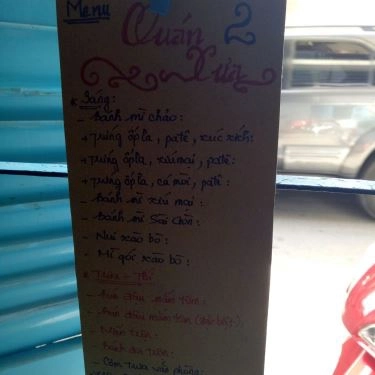 Menu
Quán 2
Xưa
* Sáng:
- Bánh mì chảo:
+ Trứng ốpla, patê, xúc xích:
+ Trứng ốpla, xíu mại, patê:
+ Trứng ốpla, cá mòi, patê:
- Bánh mì xíu mại:
- Bánh mì Sài Gòn:
- Nui xào bò:
- Mì gói xào bò:
* Trưa - Tối
- Bún đậu mắm tôm:
- Bún đậu mắm tôm (đặc biệt):
- trộn:
- Bánh đa trộn:
- Cơm trưa văn phòng: